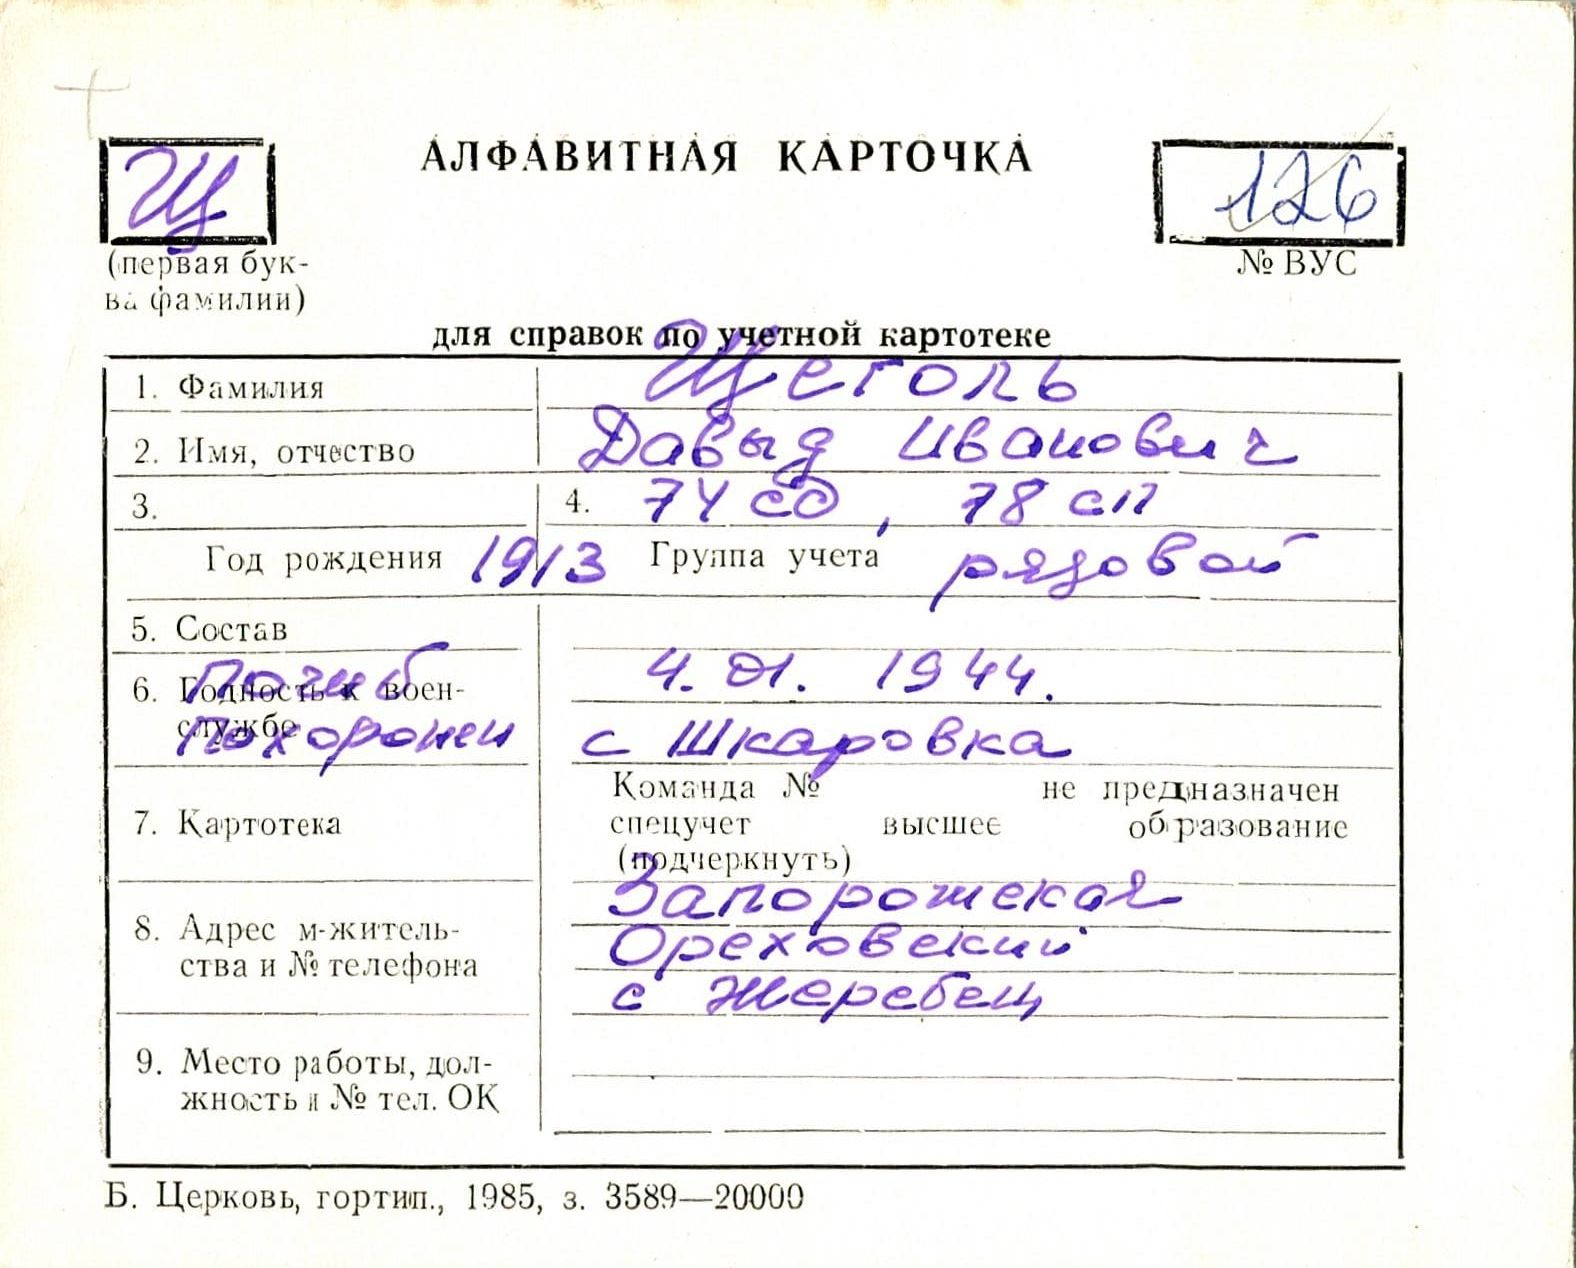 Щ
АЛФАВИТНАЯ КАРТОЧКА
126
(первая бук-
ва фамилии)
№ ВУС
для справок по учетной картотеке
1. Фамилия Щеголь
2. Имя, отчество Давыд Иванович
3. 4. 74 сд, 78 сп
Год рождения 1913 Группа учета рядовой
5. Состав
6. Годность к воен-
службе
Погиб 4.01.1944.
Похоронен с Шкаровка
7. Картотека
Команда № не предназначен
спецучет высшее образование
(подчеркнуть)
8. Адрес м-житель-
ства и № телефона
Запорожская
Ореховский
с Жеребец
9. Место работы, дол-
жность и № тел. ОК
Б. Церковь, гортип., 1985, з. 3589—20000